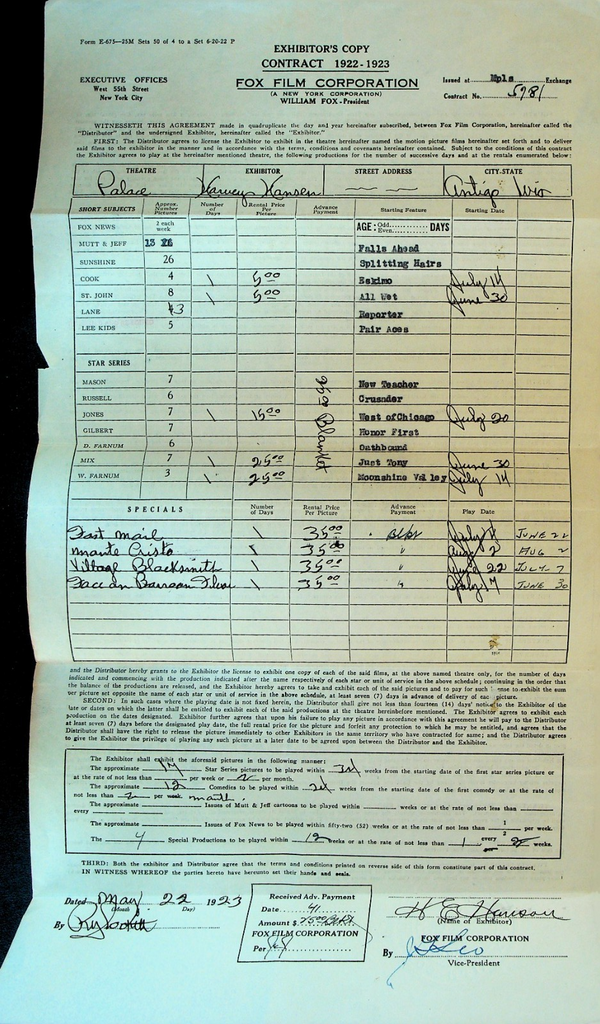 Form E-675—25M Sets 50 of 4 to a Set 6-20-22 P
EXHIBITOR'S COPY
CONTRACT 1922-1923
EXECUTIVE OFFICES
West 55th Street
New York City
FOX FILM CORPORATION
(A NEW YORK CORPORATION)
WILLIAM FOX - President
Issued at Mpls Exchange
Contract No. 5981
WITNESSETH THIS AGREEMENT made in quadruplicate the day and year hereinafter subscribed, between Fox Film Corporation, hereinafter called the
"Distributor" and the undersigned Exhibitor, hereinafter called the "Exhibitor."
FIRST: The Distributor agrees to license the Exhibitor to exhibit in the theatre hereinafter named the motion picture films hereinafter set forth and to deliver
said films to the exhibitor in the manner and in accordance with the terms, conditions and covenants hereinafter contained. Subject to the conditions of this contract
the Exhibitor agrees to play at the hereinafter mentioned theatre, the following productions for the number of successive days and at the rentals enumerated below:
THEATRE EXHIBITOR STREET ADDRESS CITY-STATE
Palace Harvey Hansen Antigo Wis
SHORT SUBJECTS Approx. Number Pictures Number of Days Rental Price Per Picture Advance Payment Starting Feature Starting Date
FOX NEWS 2 each week AGE: Odd Even DAYS
MUTT & JEFF 13 26 Falls Ahead
SUNSHINE 26 Splitting Hairs
COOK 4 \ 5.00 Eskimo July 14
ST. JOHN 8 \ 5.00 All Wet June 30
LANE 3 Reporter
LEE KIDS 5 Pair Aces
STAR SERIES
MASON 7 New Teacher
RUSSELL 6 Crusader
JONES 7 \ 15.00 West of Chicago July 20
GILBERT 7 Honor First
D. FARNUM 6 Oathbound
MIX 7 \ 25.00 Just Tony June 30
W. FARNUM 3 \ 25.00 Moonshine Valley July 14
Blanket
SPECIALS Number of Days Rental Price Per Picture Advance Payment Play Date
Fast Mail \ 35.00 JUNE 22
Monte Cristo 35.00 " Aug 2 AUG 2
Village Blacksmith \ 35.00 " 22 JULY 7
Face on Barroom Floor \ 35.00 " July 17 JUNE 30
and the Distributor hereby grants to the Exhibitor the license to exhibit one copy of each of the said films, at the above named theatre only, for the number of days
indicated and commencing with the production indicated after the name respectively of each star or unit of service in the above schedule; continuing in the order that
the balance of the productions are released, and the Exhibitor hereby agrees to take and exhibit each of the said pictures and to pay for such license to exhibit the sum
per picture set opposite the name of each star or unit of service in the above schedule, at least seven (7) days in advance of delivery of each picture.
SECOND: In such cases where the playing date is not fixed herein, the Distributor shall give not less than fourteen (14) days' notice to the Exhibitor of the
date or dates on which the latter shall be entitled to exhibit each of the said productions at the theatre hereinbefore mentioned. The Exhibitor agrees to exhibit each
production on the dates designated. Exhibitor further agrees that upon his failure to play any picture in accordance with this agreement he will pay to the Distributor
at least seven (7) days before the designated play date, the full rental price for the picture and forfeit any protection to which he may be entitled, and agrees that the
Distributor shall have the right to release the picture immediately to other Exhibitors in the same territory who have contracted for same; and the Distributor agrees
to give the Exhibitor the privilege of playing any such picture at a later date to be agreed upon between the Distributor and the Exhibitor.
The Exhibitor shall exhibit the aforesaid pictures in the following manner:
The approximate 17 Star Series pictures to be played within weeks from the starting date of the first star series picture or
at the rate of not less than per week or 2 per month.
The approximate 12 Comedies to be played within weeks from the starting date of the first comedy or at the rate of
not less than 2 per week. month.
The approximate Issues of Mutt & Jeff cartoons to be played within weeks or at the rate of not less than
every
The approximate Issues of Fox News to be played within fifty-two (52) weeks or at the rate of not less than 1 2 per week.
The 4 Special Productions to be played within 12 weeks or at the rate of not less than 1 every 2 weeks.
THIRD: Both the exhibitor and Distributor agree that the terms and conditions printed on reverse side of this form constitute part of this contract.
IN WITNESS WHEREOF the parties hereto have hereunto set their hands and seals.
Dated May 22 1923
(Month Day)
By
Received Adv. Payment
Date 41
Amount $
FOX FILM CORPORATION
Per
H E Hanson
(Name of Exhibitor)
FOX FILM CORPORATION
By
Vice-President